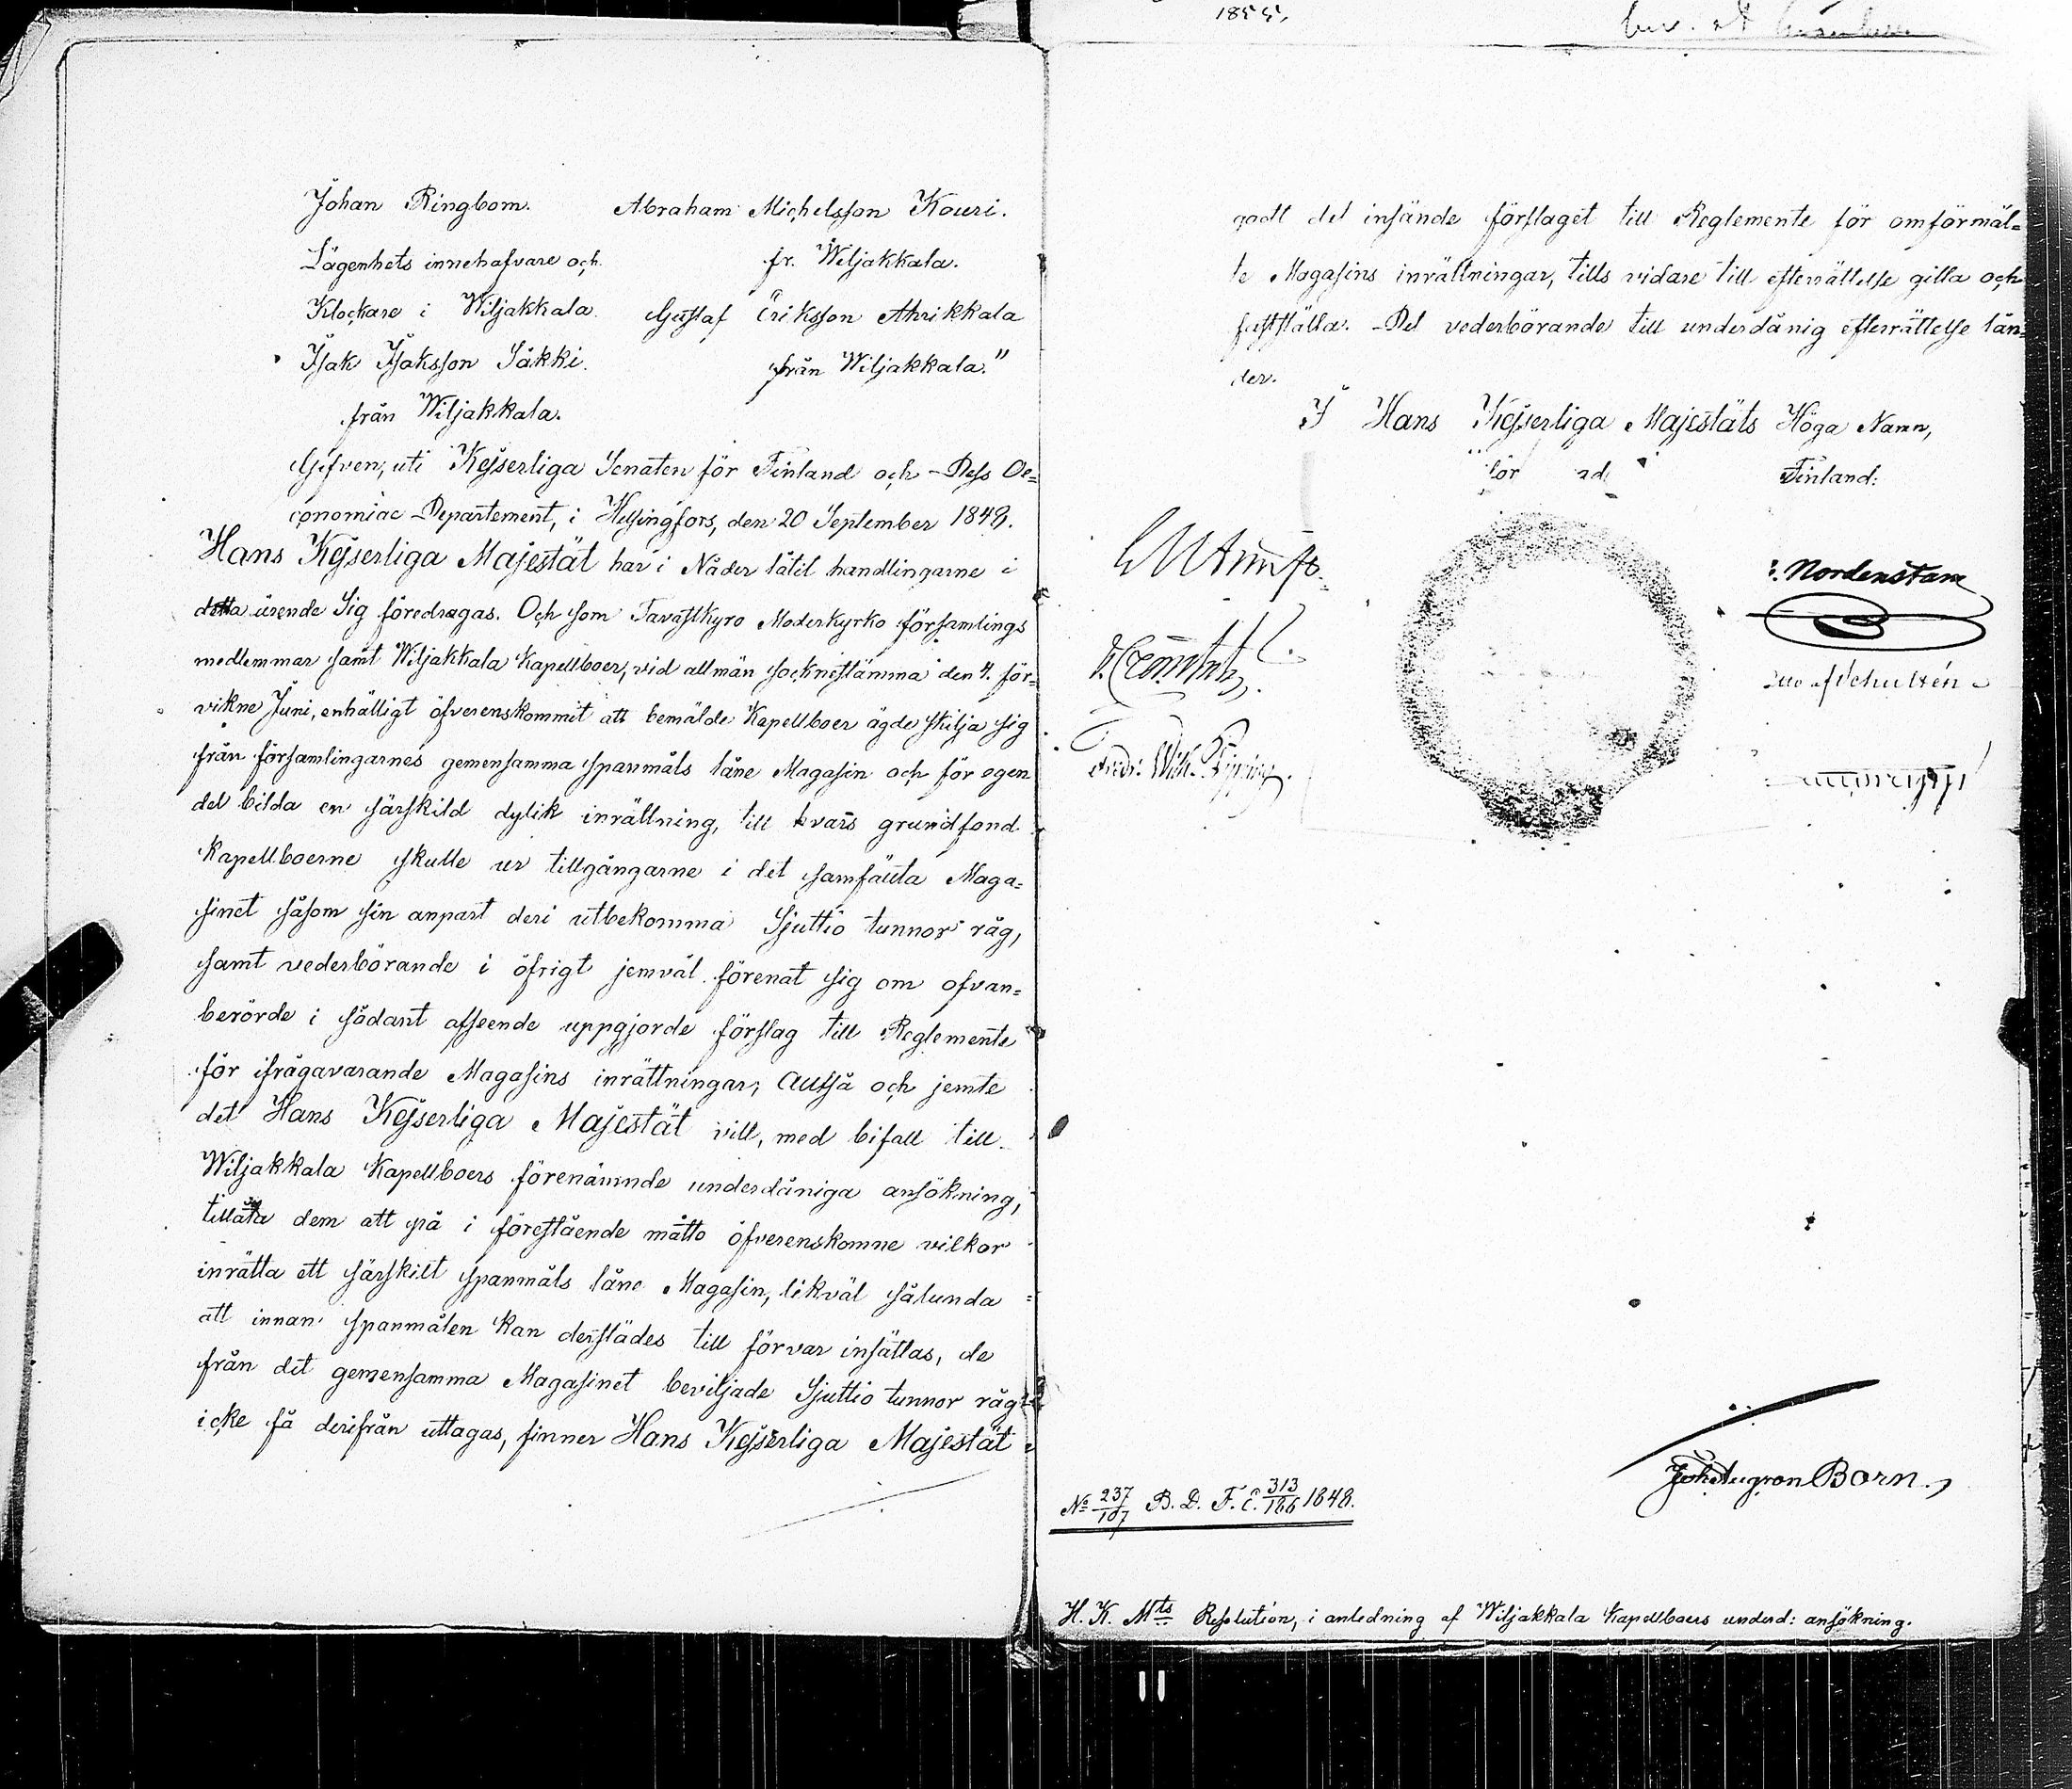 Johan Ringbom. Abraham Michelsson Kouri.
Lägenhets innehafvare och fr. Wiljakkala.
Klockare i Wiljakkala. Gustaf Eriksson Ahrikkala
Isak Isaksson Säkki. från Wiljakkala."
från Wiljakkala.
Gifven, uti Kejserliga Senaten för Finland och Dess Oe=
conomiae Departement, i Helsingfors, den 20 September 1848.
Hans Kejserliga Majestät har i Nåder låtit handlingarne i
detta ärende Sig föredragas. Och som Tavastkyro Moderkyrko församlings
medlemmar samt Wiljakkala Kapellboer, vid allmän socknestämma den 4. för=
vikne Juni, enhälligt öfverenskommit att bemälde Kapellboer ägde skilja sig
från församlingarnes gemensamma spanmåls låne Magasin och för egen
del bilda en särskild dylik inrättning, till hvars grundfond
Kapellboerne skulle ur tillgångarne i det samfäuta Maga=
sinet såsom sin anpart deri utbekomma Sjuttio tunnor råg,
samt vederbörande i öfrigt jemväl förenat sig om ofvan=
berörde i sådant afseende uppgjorde förslag till Reglemente
för ifrågavarande Magasins inrättningar; Alltså och jemte
det Hans Kejserliga Majestät vill, med bifall till
Wiljakkala Kapellboers förenämnde underdåniga ansökning,
tillåta dem att på i förestående måtto öfverenskomne vilkor
inrätta ett särskilt spanmåls låne Magasin, likväl sålunda
att innan spanmålen kan derstädes till förvar insättas, de
från det gemensamma Magasinet beviljade Sjuttio tunnor råg
icke få derifrån uttagas, finner Hans Kejserliga Majestät
1855.
godt det insände förslaget till Reglemente för omförmäl=
te Magasins inrättningar, tills vidare till efterrättelse gilla och
fastställa. Det vederbörande till underdånig efterrättelse län=
der.
I Hans Kejserliga Majestäts Höga Namn,
Finland:
Nordenstam
af Schultén
Fredr. Wilh. Pipping.
Joh. Aug. von Born.
No 237/107 B. D. F. E. 313/166 1848.
H. K. Mts Resolution, i anledning af Wiljakkala Kapellboers underd: ansökning.